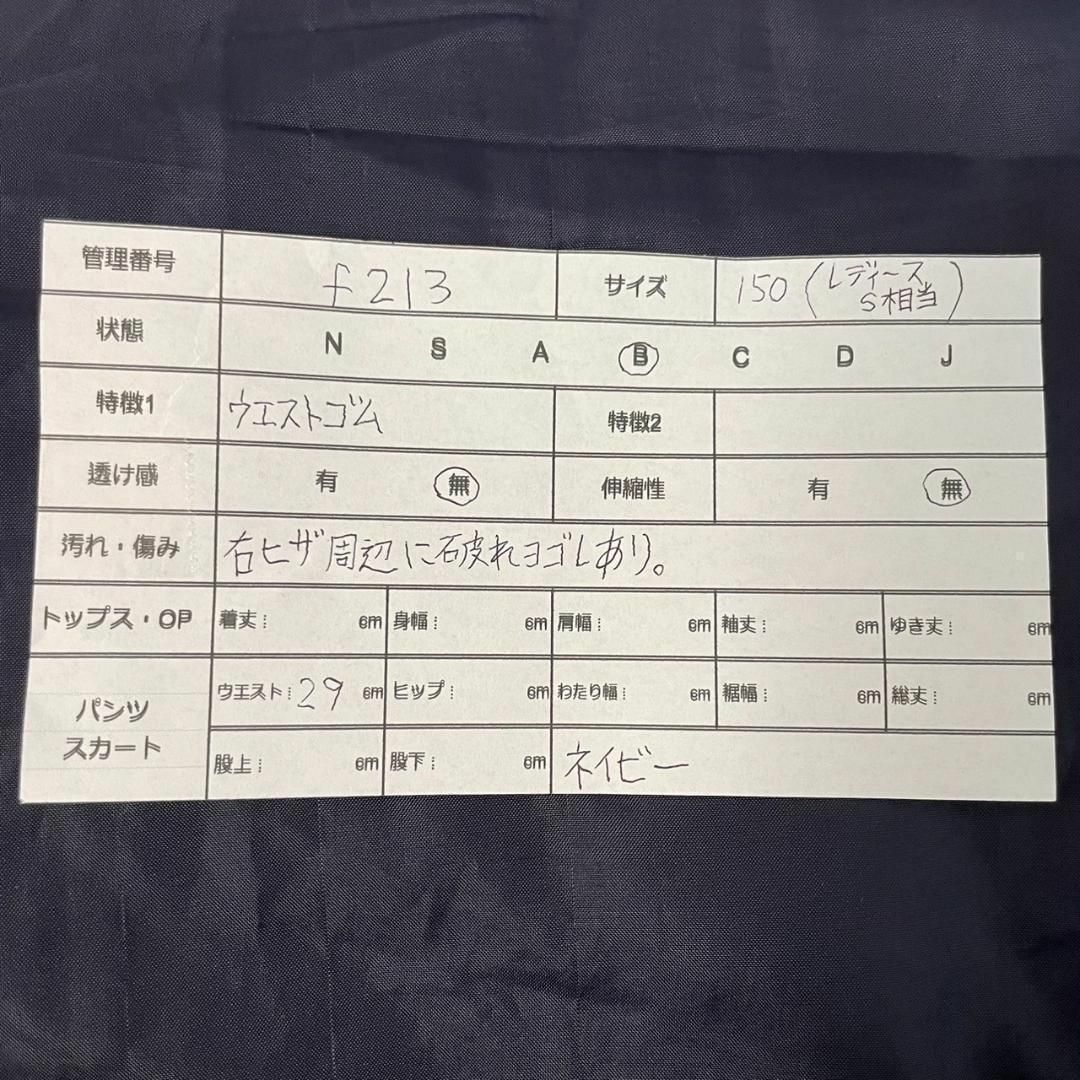 管理番号 f213 サイズ 150 (レディース S相当)
状態 N S A B C D J
特徴1 ウエストゴム 特徴2
透け感 有 無 伸縮性 有 無
汚れ・傷み 右ヒザ周辺に破れヨゴレあり。
トップス・OP 着丈： cm 身幅： cm 肩幅： cm 袖丈： cm ゆき丈： cm
パンツ スカート ウエスト：29 cm ヒップ： cm わたり幅： cm 裾幅： cm 総丈： cm
股上： cm 股下： cm ネイビー